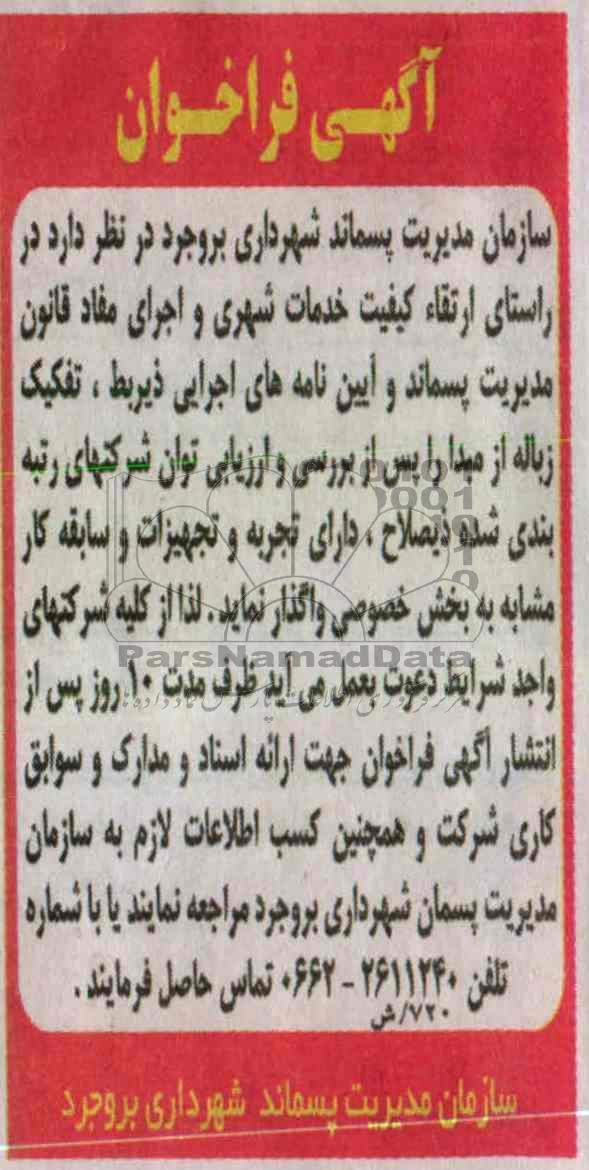 آگهی فراخوان
سازمان مدیریت پسماند شهرداری بروجرد در نظر دارد در
راستای ارتقاء کیفیت خدمات شهری و اجرای مفاد قانون
مدیریت پسماند و آیین نامه های اجرایی ذیربط ، تفکیک
زباله از مبدا را پس از بررسی و ارزیابی توان شرکتهای رتبه
بندی شده ذیصلاح ، دارای تجربه و تجهیزات و سابقه کار
مشابه به بخش خصوصی واگذار نماید . لذا از کلیه شرکتهای
ParsNamadData
واجد شرایط دعوت بعمل می آید ظرف مدت ۱۰ روز پس از
انتشار آگهی فراخوان جهت ارائه اسناد و مدارک و سوابق
کاری شرکت و همچنین کسب اطلاعات لازم به سازمان
مدیریت پسمان شهرداری بروجرد مراجعه نمایند یا با شماره
تلفن ۲۶۱۱۲۴۰ - ۰۶۶۲ تماس حاصل فرمایند .
۷۲۰/ش
سازمان مدیریت پسماند شهرداری بروجرد